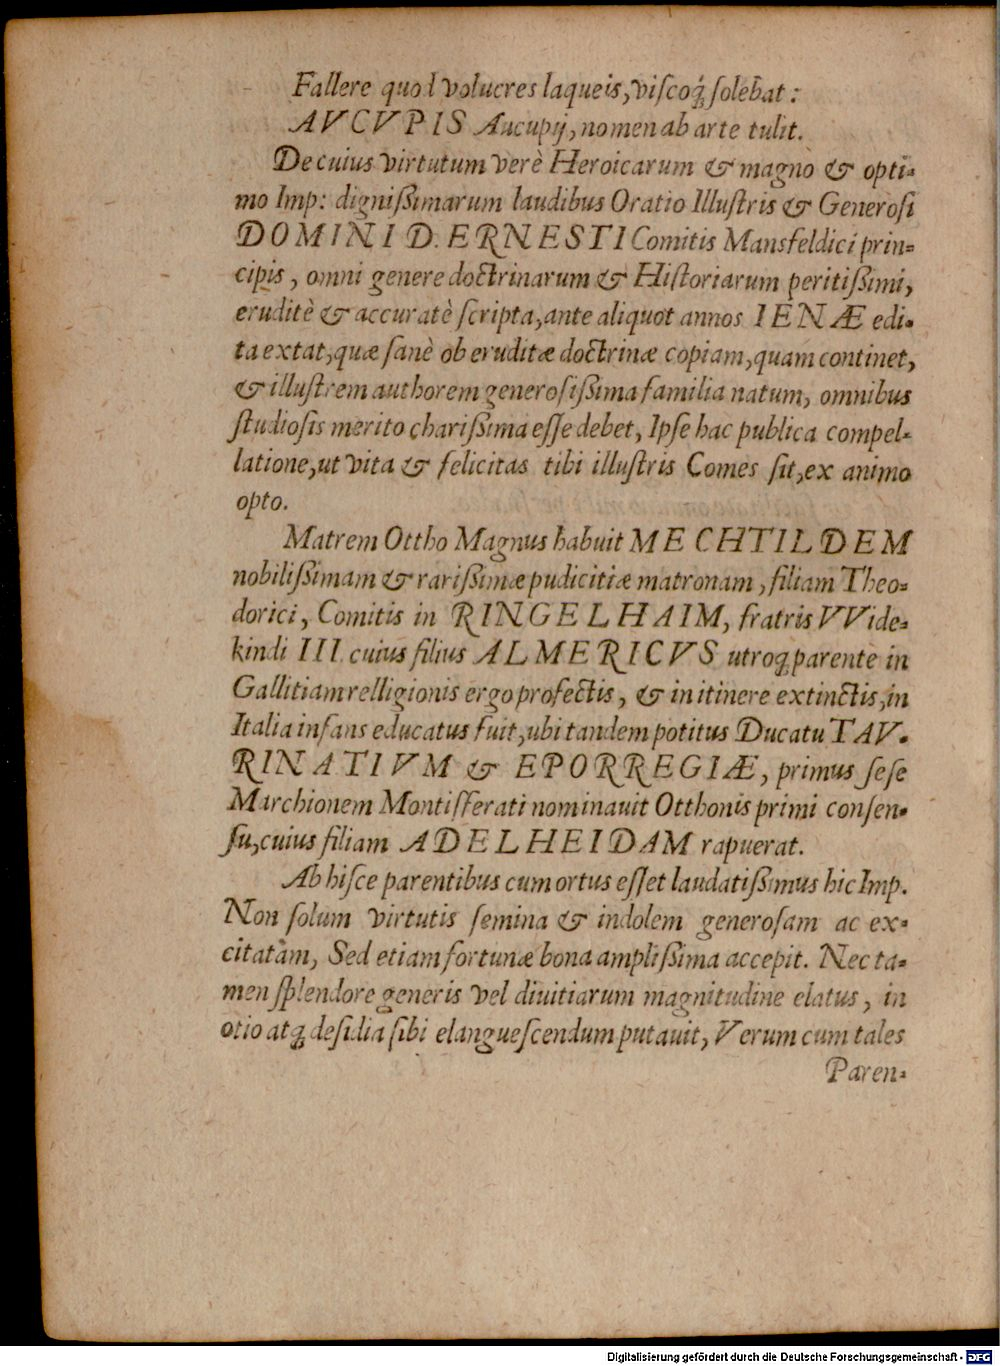 Fallere quod volucres laqueis, viscoq́; solebat:
AVCVPIS Aucupij, nomen ab arte tulit.
De cuius virtutum verè Heroicarum & magno & opti-
mo Imp: dignißimarum laudibus Oratio Illustris & Generosi
DOMINI D. ERNESTI Comitis Mansfeldici prin-
cipis, omni genere doctrinarum & Historiarum peritißimi,
eruditè & accuratè scripta, ante aliquot annos IENÆ edi-
ta extat, quæ sanè ob eruditæ doctrinæ copiam, quam continet,
& illustrem authorem generosißima familia natum, omnibus
studiosis merito charißima esse debet, Ipse hac publica compel-
latione, ut vita & felicitas tibi illustris Comes sit, ex animo
opto.
Matrem Ottho Magnus habuit MECHTILDEM
nobilißimam & rarißimæ pudicitiæ matronam, filiam Theo-
dorici, Comitis in RINGELHAIM, fratris VVide-
kindi III. cuius filius ALMERICVS utroq; parente in
Gallitiam relligionis ergo profectis, & in itinere extinctis, in
Italia infans educatus fuit, ubi tandem potitus Ducatu TAV-
RINATIVM & EPORREGIÆ, primus sese
Marchionem Montisferrati nominauit Otthonis primi consen-
su, cuius filiam ADELHEIDAM rapuerat.
Ab hisce parentibus cum ortus esset laudatißimus hic Imp.
Non solum virtutis semina & indolem generosam ac ex-
citatam, Sed etiam fortunæ bona amplißima accepit. Nec ta-
men splendore generis vel diuitiarum magnitudine elatus, in
otio atq; desidia sibi elanguescendum putauit, Verum cum tales
Paren-
Digitalisierung gefördert durch die Deutsche Forschungsgemeinschaft - DFG